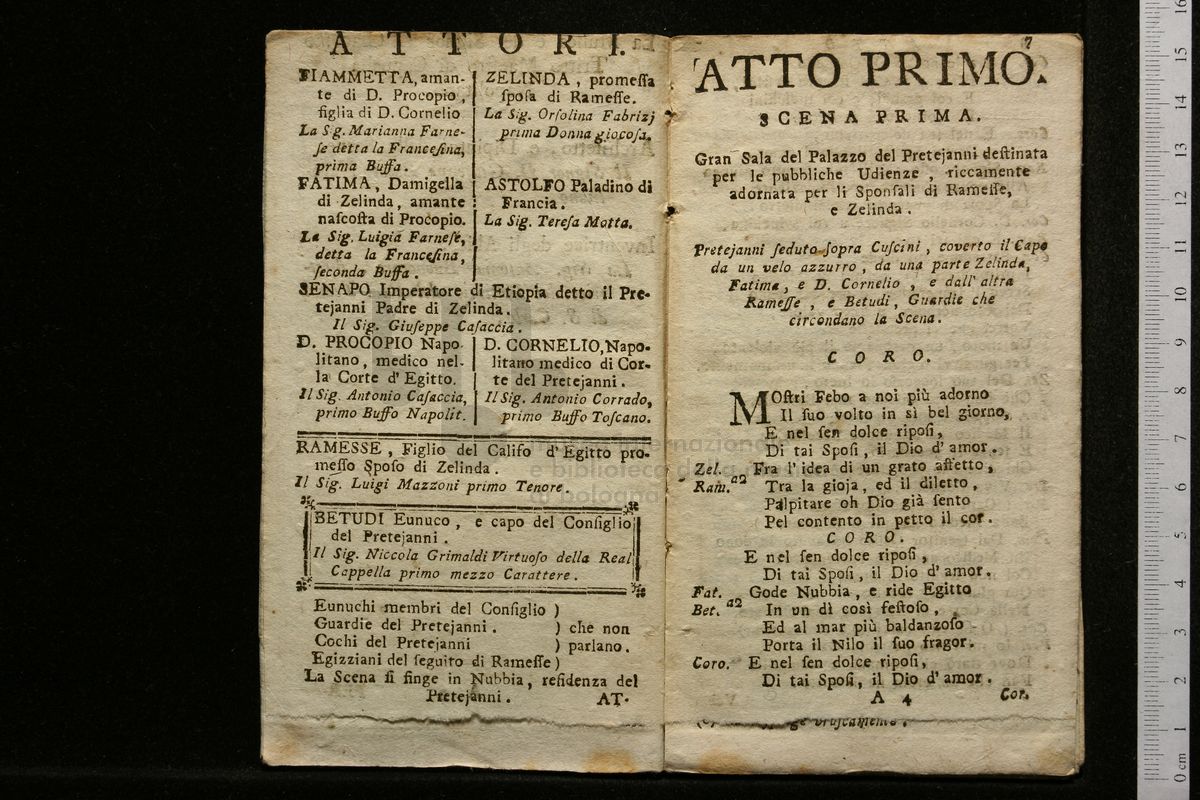 ATTORI.
FIAMMETTA, aman-
te di D. Procopio,
figlia di D. Cornelio
La Sg. Marianna Farne-
ſe detta la Franceſina,
prima Buffa.
ZELINDA, promeſſa
ſpoſa di Rameſſe.
La Sig. Orſolina Fabrizj
prima Donna giocoſa.
FATIMA, Damigella
di Zelinda, amante
naſcoſta di Procopio.
La Sig. Luigia Farneſe,
detta la Franceſina,
ſeconda Buffa.
ASTOLFO Paladino di
Francia.
La Sig. Tereſa Motta.
SENAPO Imperatore di Etiopia detto il Pre-
tejanni Padre di Zelinda.
Il Sig. Giuſeppe Caſaccia.
D. PROCOPIO Napo
litano, medico nel-
la Corte d'Egitto.
Il Sig. Antonio Caſaccia,
primo Buffo Napolit.
D. CORNELIO, Napo-
litano medico di Cor-
te del Pretejanni.
Il Sig. Antonio Corrado,
primo Buffo Toſcano.
RAMESSE, Figlio del Califo d'Egitto pro-
meſſo Spoſo di Zelinda.
Il Sig. Luigi Mazzoni primo Tenore.
BETUDI Eunuco, e capo del Conſiglio
del Pretejanni.
Il Sig. Niccola Grimaldi Virtuoſo della Real
Cappella primo mezzo Carattere.
Eunuchi membri del Conſiglio )
Guardie del Pretejanni. ) che non
Cochi del Pretejanni ) parlano.
Egizziani del ſeguito di Rameſſe )
La Scena ſi finge in Nubbia, reſidenza del
Pretejanni. AT-
7
ATTO PRIMO.
SCENA PRIMA.
Gran Sala del Palazzo del Pretejanni deſtinata
per le pubbliche Udienze, riccamente
adornata per li Sponſali di Rameſſe,
e Zelinda.
Pretejanni ſeduto ſopra Cuſcini, coverto il Capo
da un velo azzurro, da una parte Zelinda,
Fatima, e D. Cornelio, e dall'altra
Rameſſe, e Betudi, Guardie che
circondano la Scena.
CORO.
MOſtri Febo a noi più adorno
Il ſuo volto in sì bel giorno,
E nel ſen dolce ripoſi,
Di tai Spoſi, il Dio d'amor.
Zel. Fra l'idea di un grato affetto,
Ram. a2 Tra la gioja, ed il diletto,
Palpitare oh Dio già ſento
Pel contento in petto il cor.
CORO.
E nel ſen dolce ripoſi,
Di tai Spoſi, il Dio d'amor.
Fat. Gode Nubbia, e ride Egitto
Bet. a2 In un dì così feſtoſo,
Ed al mar più baldanzoſo
Porta il Nilo il ſuo fragor.
Coro. E nel ſen dolce ripoſi,
Di tai Spoſi, il Dio d'amor.
A 4 Cor.
bruſcamente.
museo internazionale
e biblioteca della
di bologna
16
15
14
13
12
11
10
9
8
7
6
5
4
3
2
1
0 cm